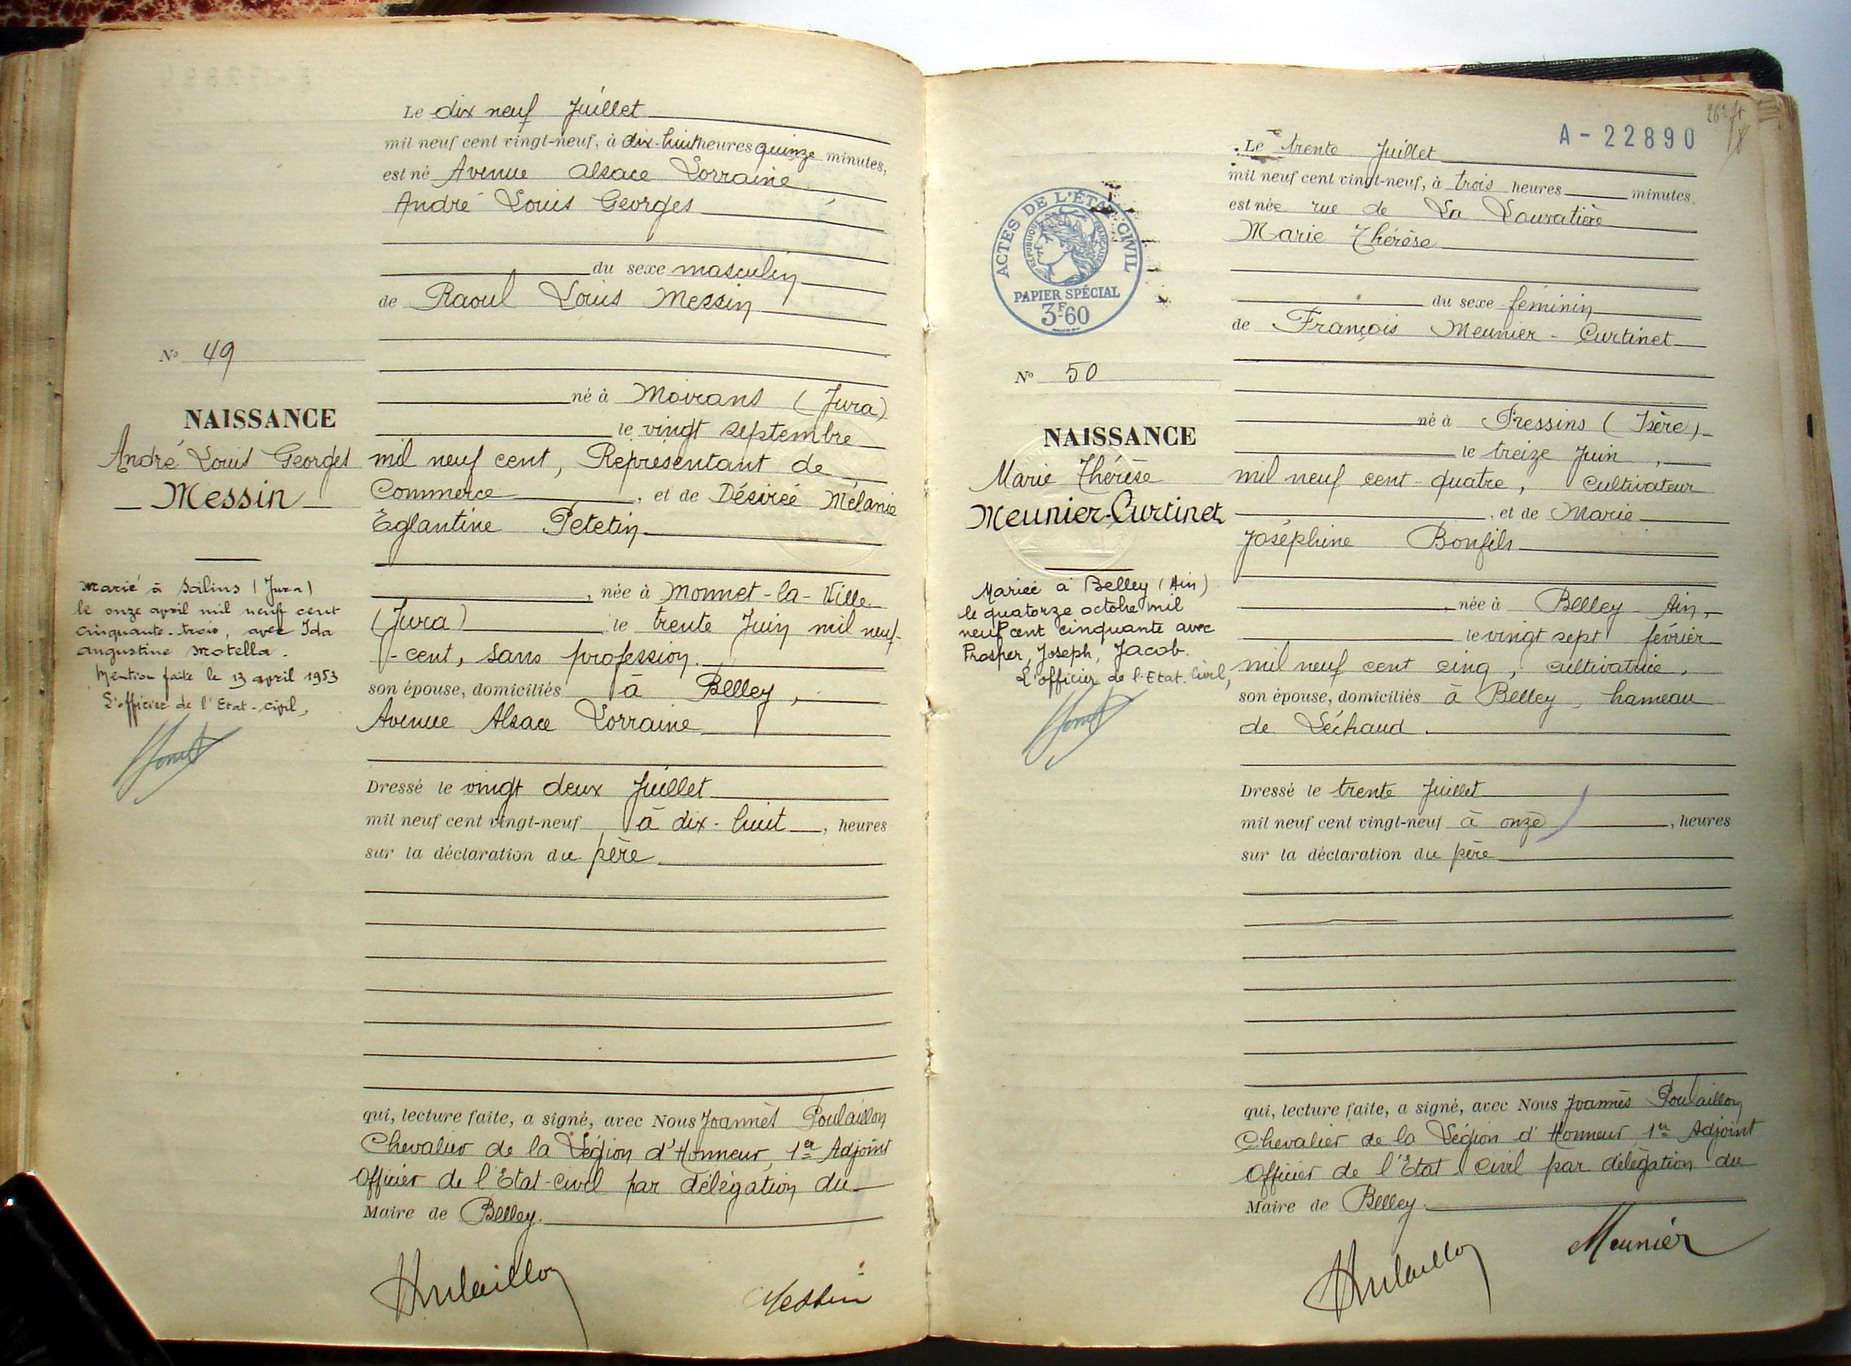 Le dix neuf Juillet
mil neuf cent vingt-neuf, à dix-huit heures quinze minutes,
est né Avenue Alsace Lorraine
André Louis Georges
du sexe masculin
de Raoul Louis Messin
né à Moirans (Jura)
le vingt septembre
mil neuf cent, Représentant de
Commerce, et de Désirée Mélanie
Eglantine Petetin
, née à Monnet-la-Ville
(Jura) le trente Juin mil neuf-
-cent, sans profession.
son épouse, domiciliés à Belley,
Avenue Alsace Lorraine
Dressé le vingt deux Juillet
mil neuf cent vingt-neuf à dix-huit, heures
sur la déclaration du père
qui, lecture faite, a signé, avec Nous Joannès Poulaillon
Chevalier de la Légion d'Honneur, 1er Adjoint
Officier de l'Etat-Civil par délégation du
Maire de Belley.
Poulaillon
Messin
No 49
NAISSANCE
André Louis Georges
Messin
Marié à Salins (Jura)
le onze avril mil neuf cent
cinquante-trois, avec Ida
Augustine Motella.
Mention faite le 13 avril 1953
L'officier de l'Etat-civil,
A-22890
Le trente Juillet
mil neuf cent vingt-neuf, à trois heures minutes,
est née rue de La Louvatière
Marie Thérèse
du sexe féminin
de François Meunier-Curtinet
né à Pressins (Isère)
le treize Juin,
mil neuf cent-quatre, cultivateur
, et de Marie
Joséphine Bonfils
, née à Belley Ain,
le vingt sept février
mil neuf cent cinq, cultivatrice,
son épouse, domiciliés à Belley, hameau
de Léchaud.
Dressé le trente Juillet
mil neuf cent vingt-neuf à onze, heures
sur la déclaration du père
qui, lecture faite, a signé, avec Nous Joannès Poulaillon
Chevalier de la Légion d'Honneur, 1er Adjoint
Officier de l'Etat Civil par délégation du
Maire de Belley.
Poulaillon
Meunier
ACTES DE L'ÉTAT CIVIL
RÉPUBLIQUE FRANÇAISE
PAPIER SPÉCIAL
3F60
No 50
NAISSANCE
Marie Thérèse
Meunier-Curtinet
Mariée à Belley (Ain)
le quatorze octobre mil
neuf cent cinquante avec
Prosper, Joseph, Jacob.
L'officier de l'Etat-Civil,